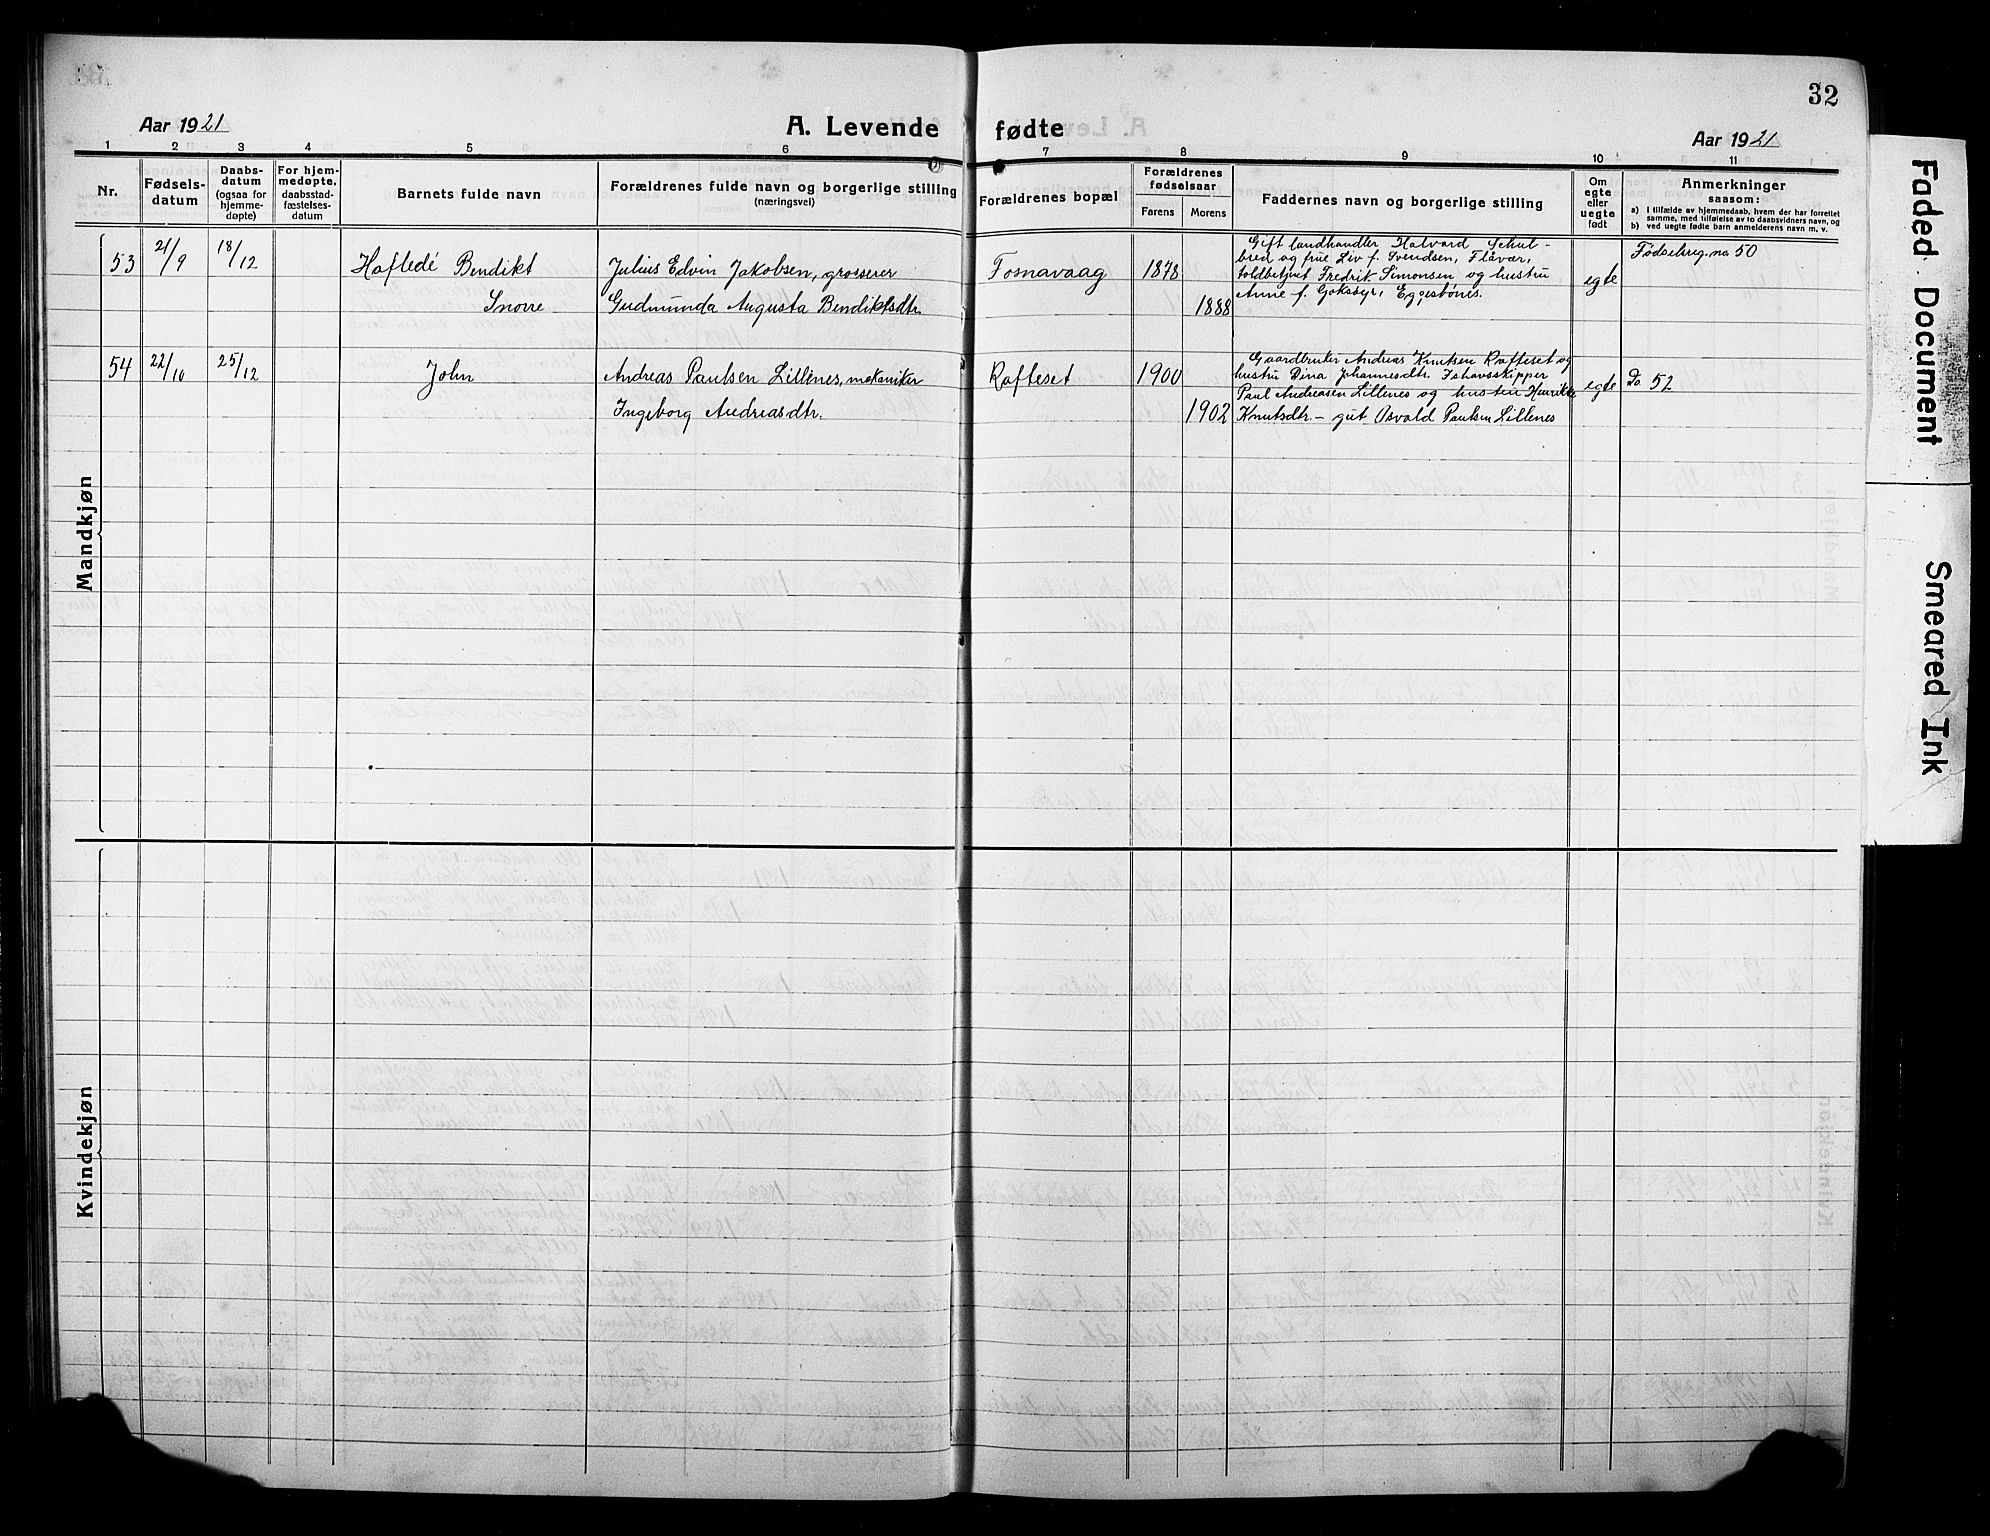 32
Aar 1921
A. Levende fødte
Aar 1921
1 2 3 4 5 6 7 8 9 10 11
Nr.
Fødsels-
datum
Daabs-
datum
(ogsaa for
hjemme-
døpte)
For hjem-
medøpte,
daabsstad-
fæstelses-
datum
Barnets fulde navn
Forældrenes fulde navn og borgerlige stilling
(næringsvei)
Forældrenes bopæl
Forældrenes
fødselsaar
Farens Morens
Faddernes navn og borgerlige stilling
Om
egte
eller
uegte
født
Anmerkninger
saasom:
a) I tilfælde av hjemmedaab, hvem der har forrettet
samme, med tilføielse av to daabsvidners navn, og
b) ved uegte fødte barn anmelderens navn m. v.
Mandkjøn
53 21/9 18/12
Bendikt
Snorre
Julius Edvin Jakobsen, grosserer
Gudmunda Augusta Bendiktsdtr.
Fosnavaag
1878
1888
Gift landhandler Halvard Schul-
bred og frue Liv f. Svendsen, Flåvær,
toldbetjent Fredrik Simonsen og hustru
Anne f. Goksøyr, Eggesbønes.
egte
Fødselreg. no 50
54 22/10 25/12
John
Andreas Paulsen Lillenes, mekaniker
Ingeborg Andreasdtr.
Rafteset
1900
1902
Gaardbruker Andreas Knutsen Rafteset og
hustru Dina Johannesdtr. Ishavsskipper
Paul Andreasen Lillenes og hustru Henrikke
Knutsdtr - gut Osvald Paulsen Lillenes
egte
Do 52
Kvindekjøn
Faded Document
Smeared Ink